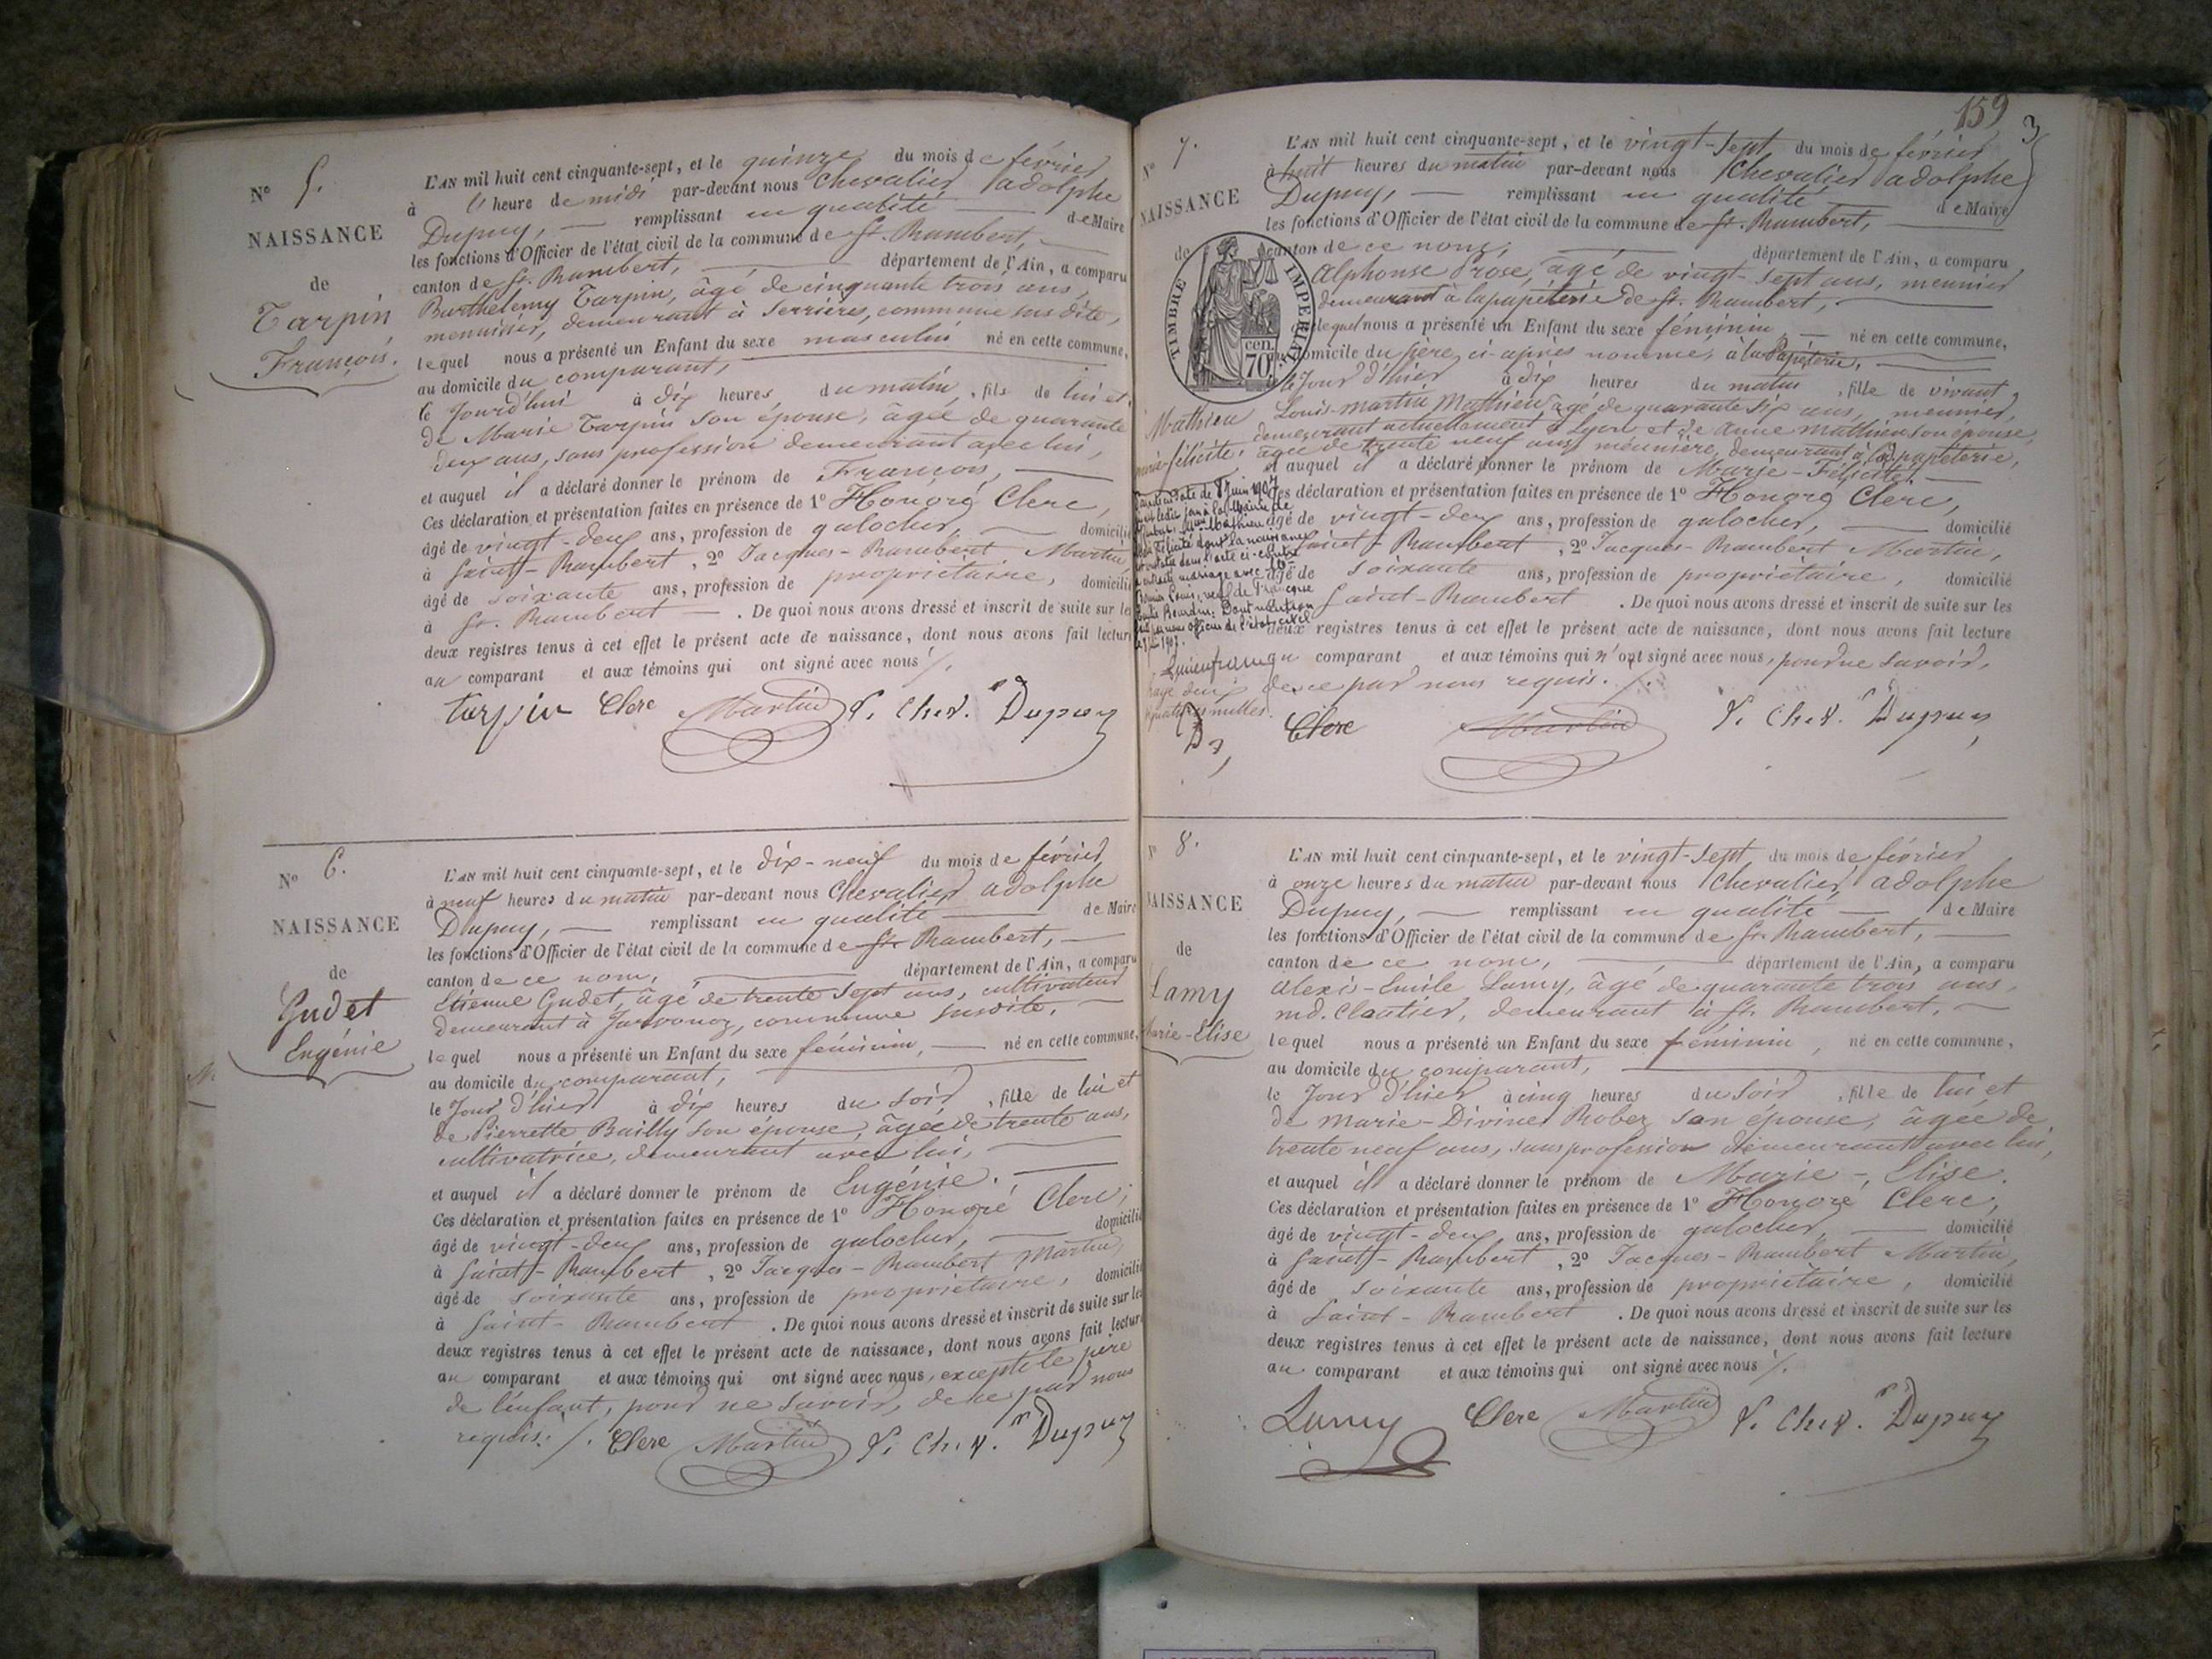 N° 5.
NAISSANCE
de
Tarpin
François.
L'AN mil huit cent cinquante-sept, et le quinze du mois de février
à l'heure de midi par-devant nous Chevalier adolphe
Dupuy, remplissant en qualité de Maire
les fonctions d'Officier de l'état civil de la commune de St. Rambert,
canton de St. Rambert, département de l'Ain, a comparu
Barthélemy Tarpin, âgé de cinquante trois ans,
menuisier, demeurant à Serrières, commune susdite,
lequel nous a présenté un Enfant du sexe masculin né en cette commune,
au domicile du comparant,
le jourd'hui à dix heures du matin, fils de lui et
de Marie Tarpin son épouse, âgée de quarante
deux ans, sans profession demeurant avec lui,
et auquel il a déclaré donner le prénom de François,
Ces déclaration et présentation faites en présence de 1° Honoré Clerc,
âgé de vingt-deux ans, profession de galocher, domicilié
à Saint-Rambert, 2° Jacques-Rambert Martin,
âgé de soixante ans, profession de propriétaire, domicilié
à St. Rambert. De quoi nous avons dressé et inscrit de suite sur les
deux registres tenus à cet effet le présent acte de naissance, dont nous avons fait lecture
au comparant et aux témoins qui ont signé avec nous /.
Tarpin Clerc Martin Chev. Dupuy
N° 6.
NAISSANCE
de
Gudet
Eugénie
L'AN mil huit cent cinquante-sept, et le dix-neuf du mois de février
à neuf heures du matin par-devant nous Chevalier adolphe
Dupuy, remplissant en qualité de Maire
les fonctions d'Officier de l'état civil de la commune de St. Rambert,
canton de ce nom, département de l'Ain, a comparu
Etienne Gudet, âgé de trente sept ans, cultivateur
demeurant à commune susdite,
lequel nous a présenté un Enfant du sexe féminin, né en cette commune,
au domicile du comparant,
le Jour d'hier à dix heures du soir, fille de lui et
de Pierrette Bailly son épouse, âgée de trente ans,
cultivatrice, demeurant avec lui,
et auquel il a déclaré donner le prénom de Eugénie.
Ces déclaration et présentation faites en présence de 1° Honoré Clerc,
âgé de vingt-deux ans, profession de galocher, domicilié
à Saint-Rambert, 2° Jacques-Rambert Martin,
âgé de soixante ans, profession de propriétaire, domicilié
à Saint-Rambert. De quoi nous avons dressé et inscrit de suite sur les
deux registres tenus à cet effet le présent acte de naissance, dont nous avons fait lecture
au comparant et aux témoins qui ont signé avec nous, excepté le père
de l'enfant, pour ne savoir, de ce par nous
requis. /. Clerc Martin Chev. Dupuy
159
3
N° 7.
NAISSANCE
de
TIMBRE IMPERIAL
70 cen.
Mathieu
marie-félicité.
L'AN mil huit cent cinquante-sept, et le vingt-sept du mois de février
à huit heures du matin par-devant nous Chevalier adolphe
Dupuy, remplissant en qualité de Maire
les fonctions d'Officier de l'état civil de la commune de St. Rambert,
canton de ce nom, département de l'Ain, a comparu
Alphonse Prose, âgé de vingt-sept ans, meunier
demeurant à la papéterie de St. Rambert,
lequel nous a présenté un Enfant du sexe féminin, né en cette commune,
domicile du père, ci-après nommé, à la Papéterie,
le Jour d'hier à dix heures du matin, fille de vivant
Louis-martin Mathieu âgé de quarante six ans, meunier,
demeurant actuellement à Lyon et de Anne Mathieu son épouse,
âgée de trente neuf ans, meunière, demeurant à la papéterie,
et auquel il a déclaré donner le prénom de Marie-Félicité
Ces déclaration et présentation faites en présence de 1° Honoré Clerc,
âgé de vingt-deux ans, profession de galocher, domicilié
Saint-Rambert, 2° Jacques-Rambert Martin,
âgé de soixante ans, profession de propriétaire, domicilié
Saint-Rambert. De quoi nous avons dressé et inscrit de suite sur les
deux registres tenus à cet effet le présent acte de naissance, dont nous avons fait lecture
au comparant et aux témoins qui n'ont signé avec nous, pour ne savoir,
de ce par nous requis. /.
date de 8 Juin 1907
Mathieu
félicité dont la naissance
constatée dans l'acte ci-contre
a contracté mariage avec
Louis, veuf de Françoise
Bourdin. Dont mention
officier de l'état civil
nulles.
Clerc Martin Chev. Dupuy
N° 8.
NAISSANCE
de
Lamy
Marie-Elise
L'AN mil huit cent cinquante-sept, et le vingt-sept du mois de février
à onze heures du matin par-devant nous Chevalier adolphe
Dupuy, remplissant en qualité de Maire
les fonctions d'Officier de l'état civil de la commune de St. Rambert,
canton de ce nom, département de l'Ain, a comparu
Alexis-Emile Lamy, âgé de quarante trois ans,
md. Cloutier, demeurant à St. Rambert,
lequel nous a présenté un Enfant du sexe féminin, né en cette commune,
au domicile du comparant,
le Jour d'hier à cinq heures du soir, fille de lui et
de Marie-Divine Robez son épouse, âgée de
trente neuf ans, sans profession demeurant avec lui,
et auquel il a déclaré donner le prénom de Marie-Elise.
Ces déclaration et présentation faites en présence de 1° Honoré Clerc,
âgé de vingt-deux ans, profession de galocher, domicilié
à Saint-Rambert, 2° Jacques-Rambert Martin,
âgé de soixante ans, profession de propriétaire, domicilié
à Saint-Rambert. De quoi nous avons dressé et inscrit de suite sur les
deux registres tenus à cet effet le présent acte de naissance, dont nous avons fait lecture
au comparant et aux témoins qui ont signé avec nous /.
Lamy Clerc Martin Chev. Dupuy